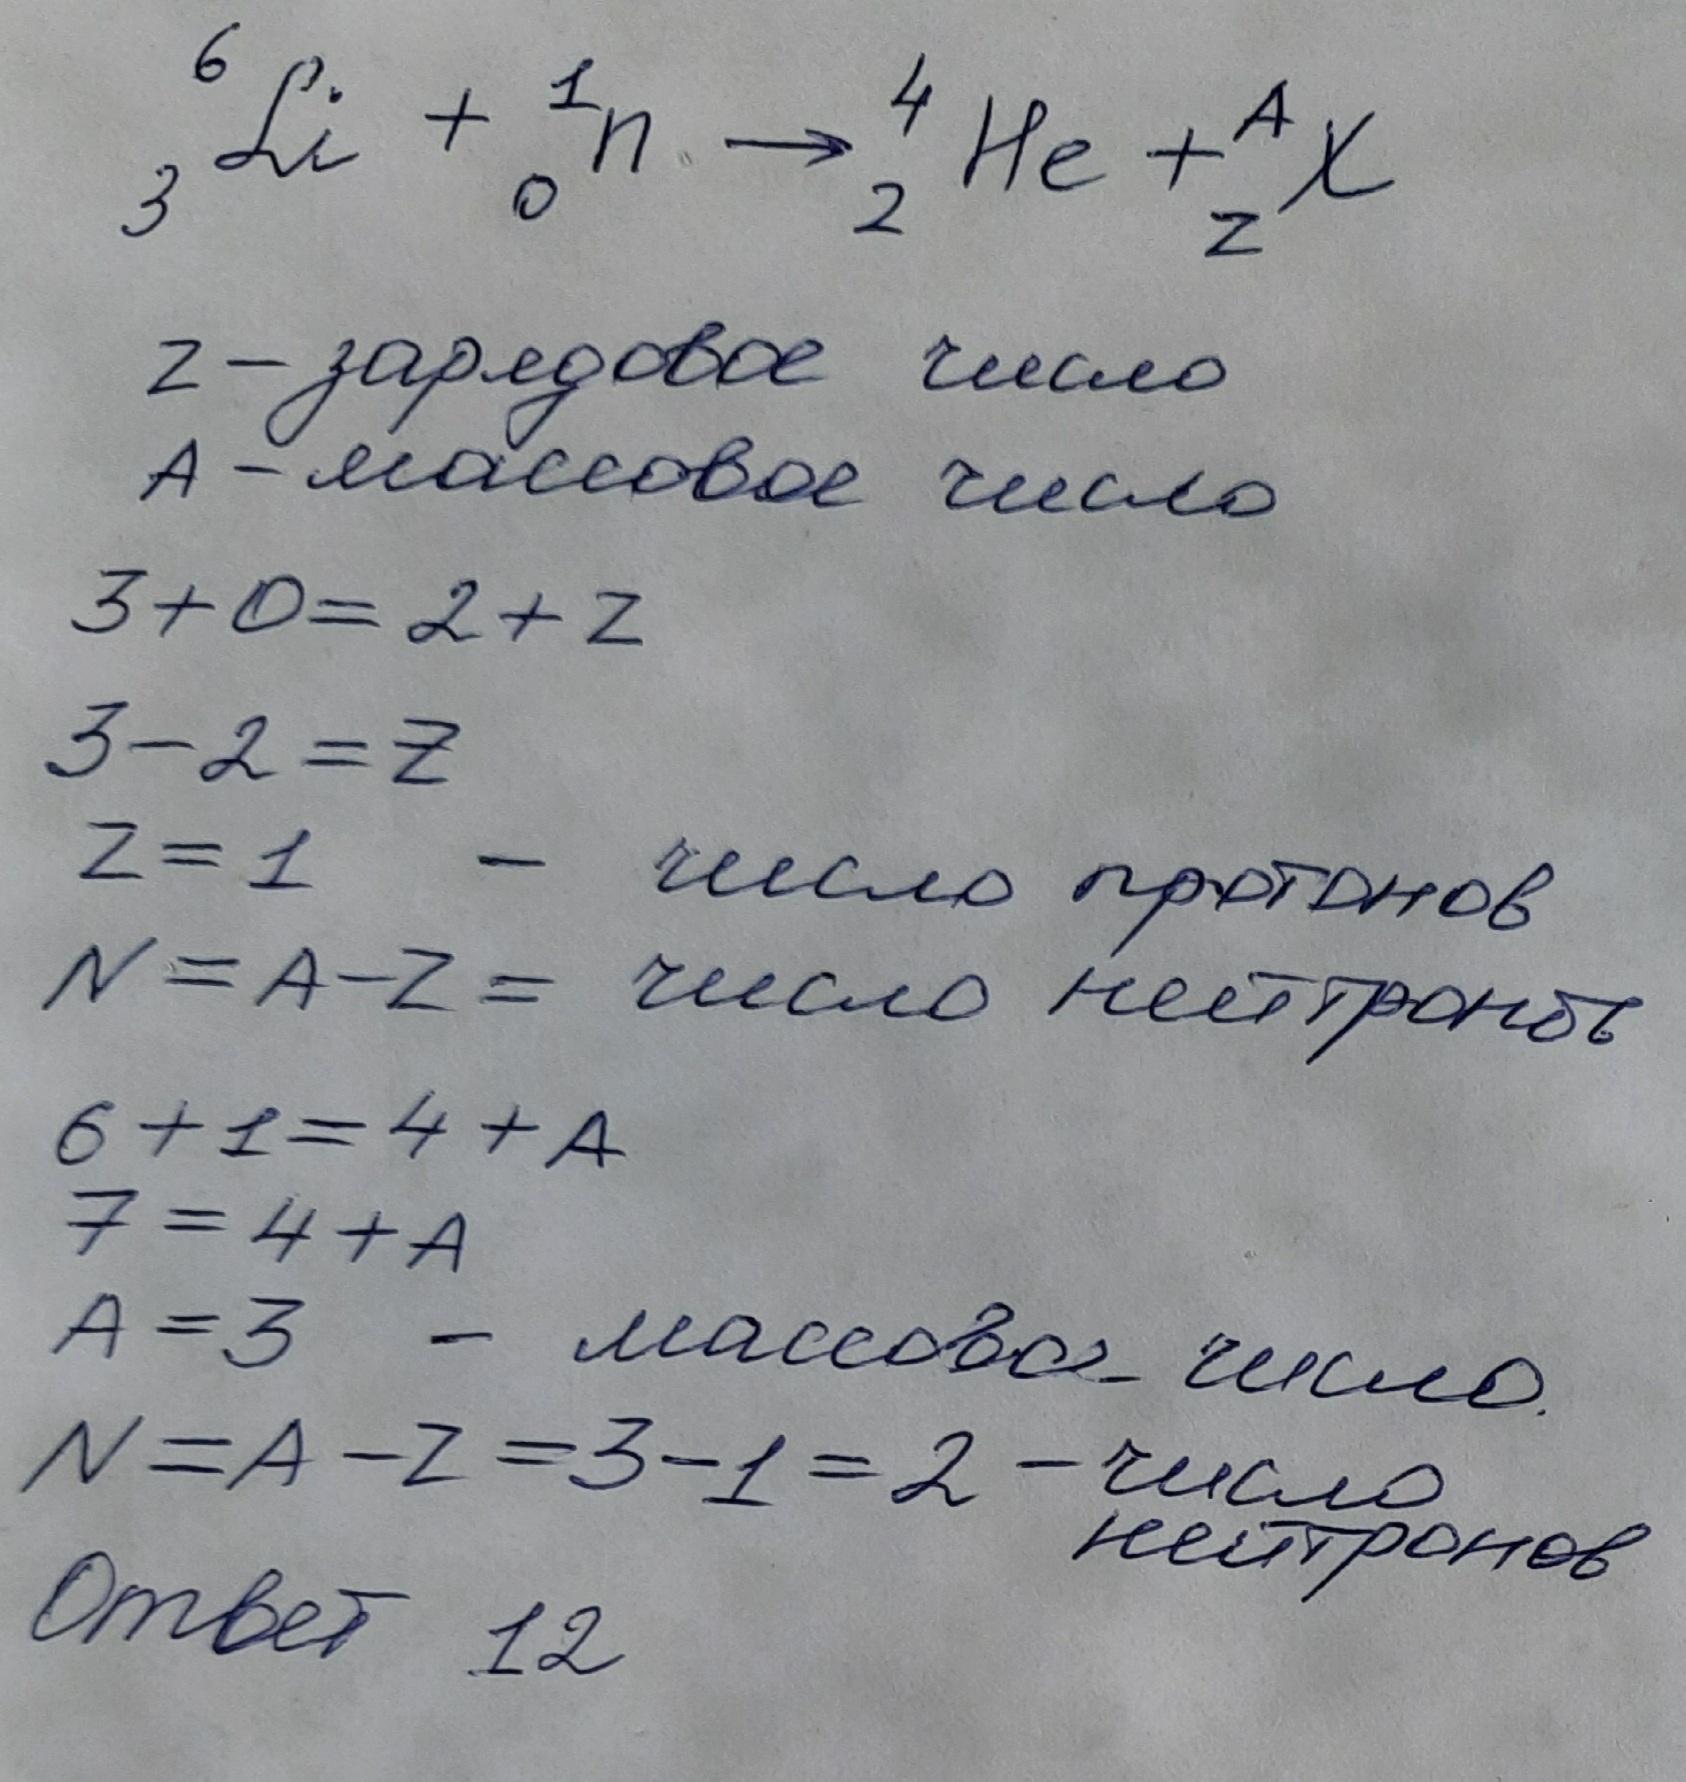 ⁶₃Li + ¹₀n → ⁴₂He + ᴬzX
z – зарядовое число
A – массовое число
3 + 0 = 2 + z
3 – 2 = z
z = 1 – число протонов
N = A – Z = число нейтроны
6 + 1 = 4 + A
7 = 4 + A
A = 3 – массовое число.
N = A – Z = 3 – 1 = 2 – число
нейтронов
Ответ 12